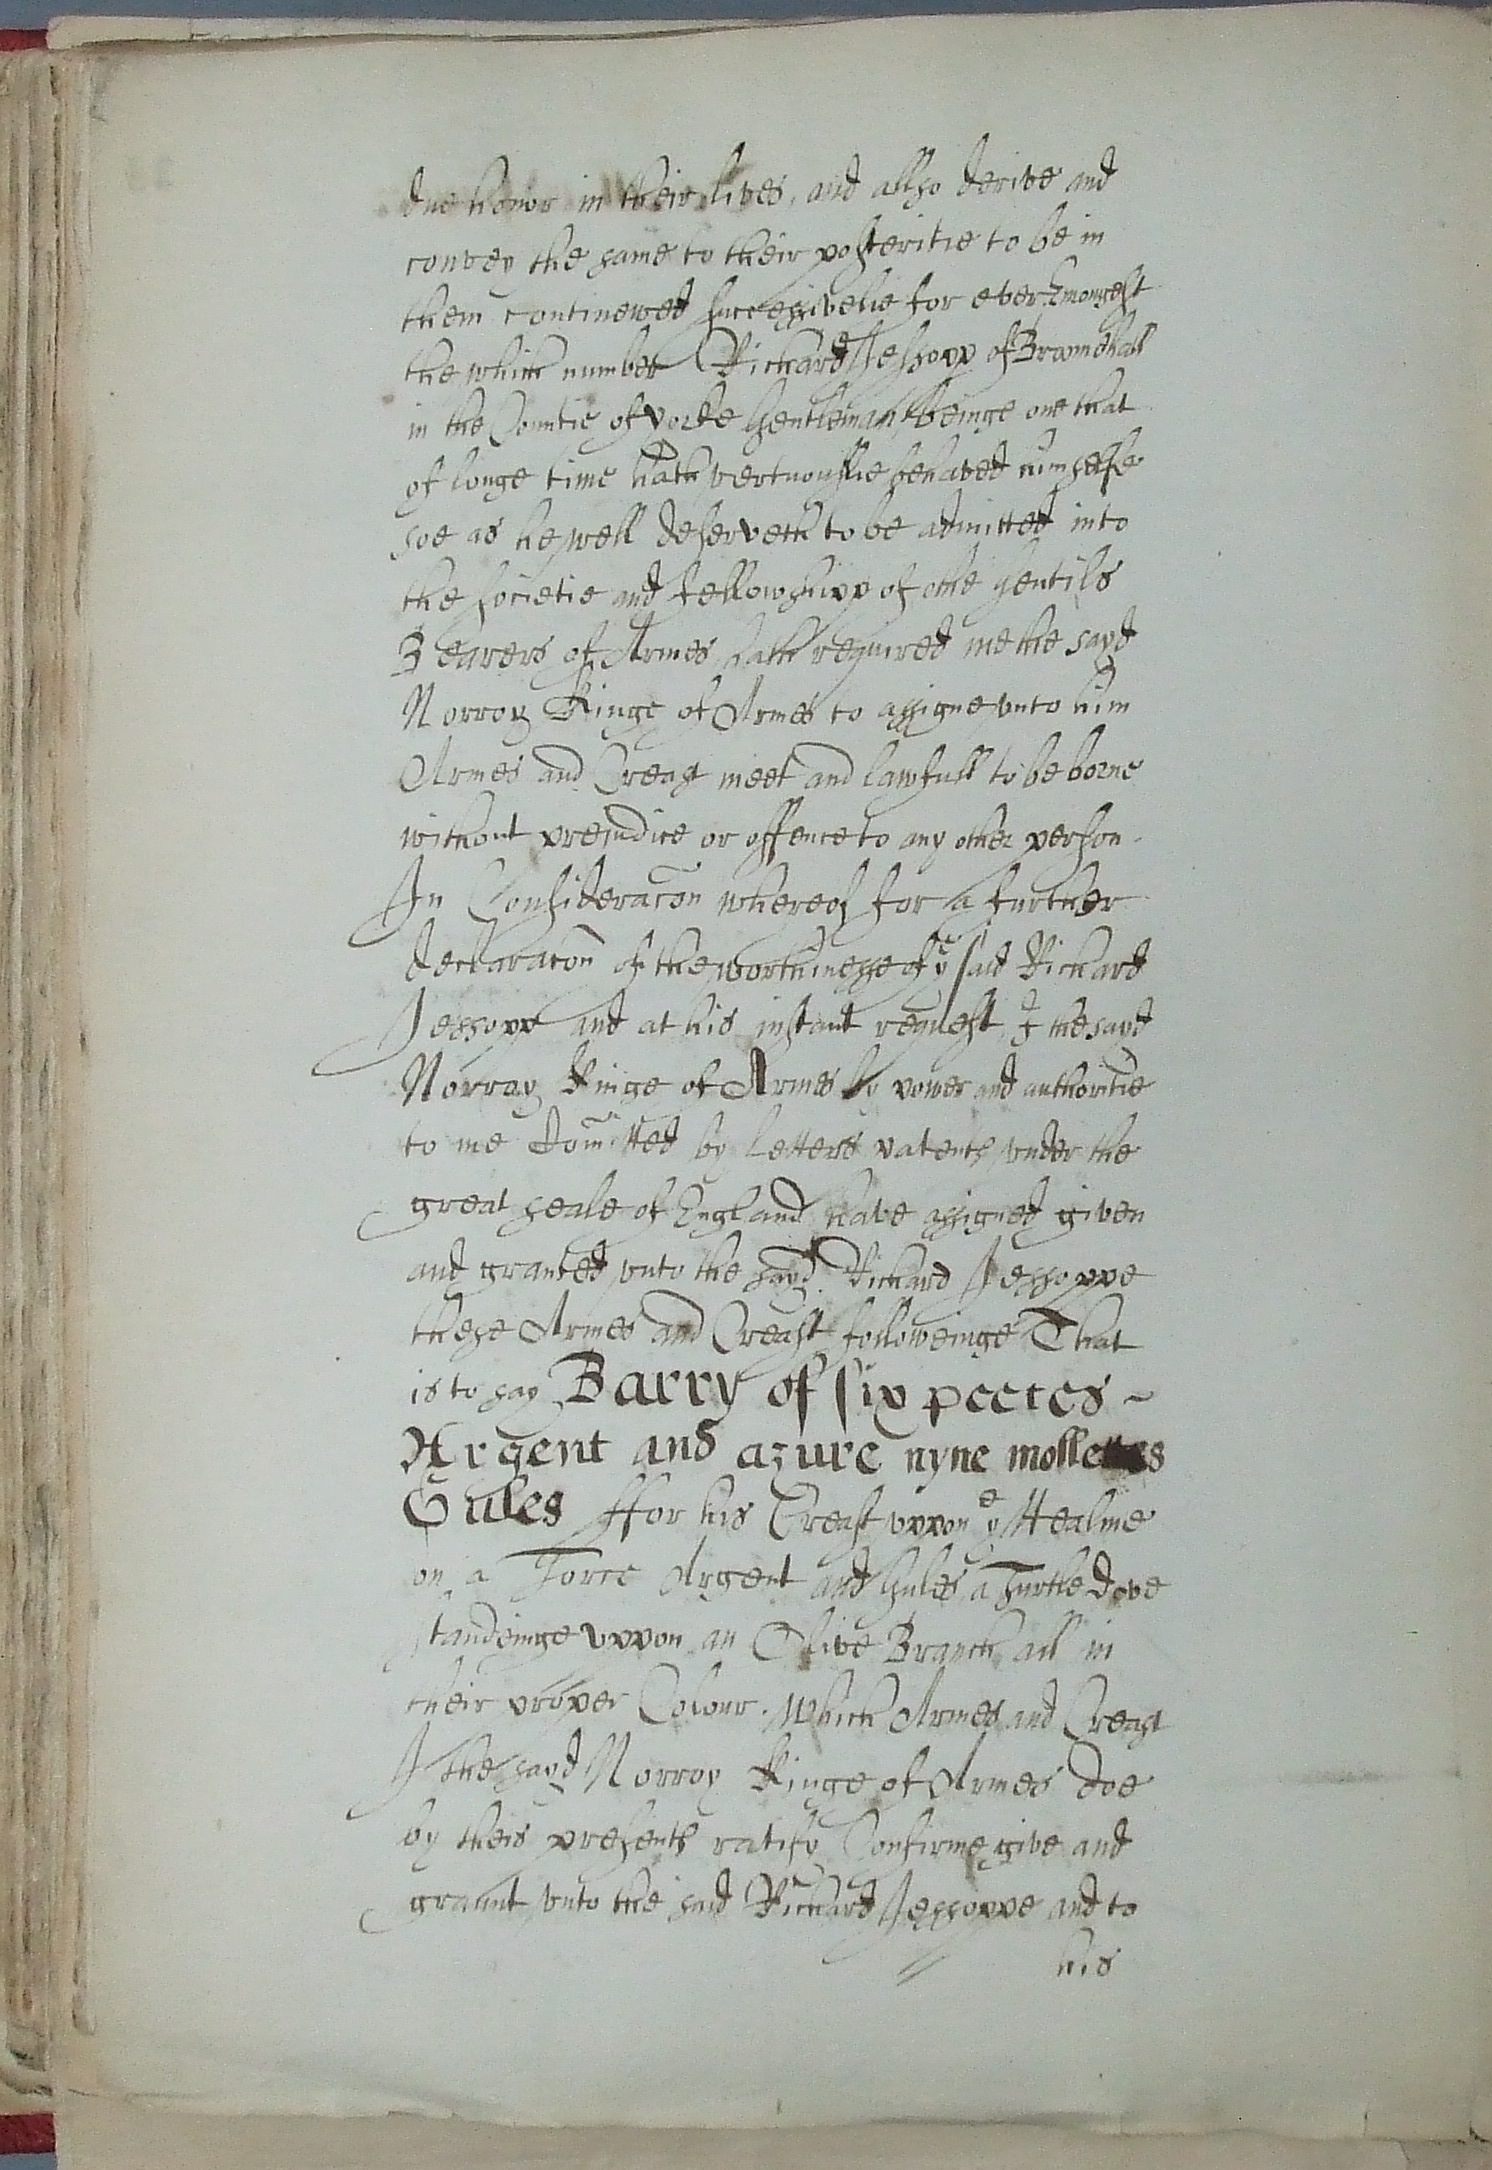 due honor in their lives, and allso derive and
convey the same to their posteritie to be in
them continewed successivelie for ever Emongest
the which number Richard Jessopp of Bromehall
in the Countie of yorke Gentleman, beinge one that
of longe time hath vertuouslie behaved himselfe
soe as he well deserveth to be admitted into
the societie and fellowshipp of othe gentils
Bearers of Armes, hath required me the sayd
Norroy Kinge of Armes to assigne vnto him
Armes and Creast meet and lawfull to be borne
without prejudice or offence to any other person.
In Consideracon whereof for a further
declaracon of the worthinesse of yͤ said Richard
Jessopp and at his instant request, I the sayd
Norroy Kinge of Armes by power and authoritie
to me Comitted by letters patents vnder the
great seale of England have assigned given
and granted vnto the sayd Richard Jessoppe
these Armes and Creast followeinge That
is to say Barry of six peeces ~
Argent and azure nyne mollettes
Gules ffor his Creast vppon yͤ Healme
on a Torce Argent and Gules a Turtle dove
standeinge vppon an Olive Branch all in
their proper Colour. Which Armes and Creast
I the sayd Norroy Kinge of Armes doe
by theis presents ratify Confirme give and
graunt vnto the said Richard Jessoppe and to
his